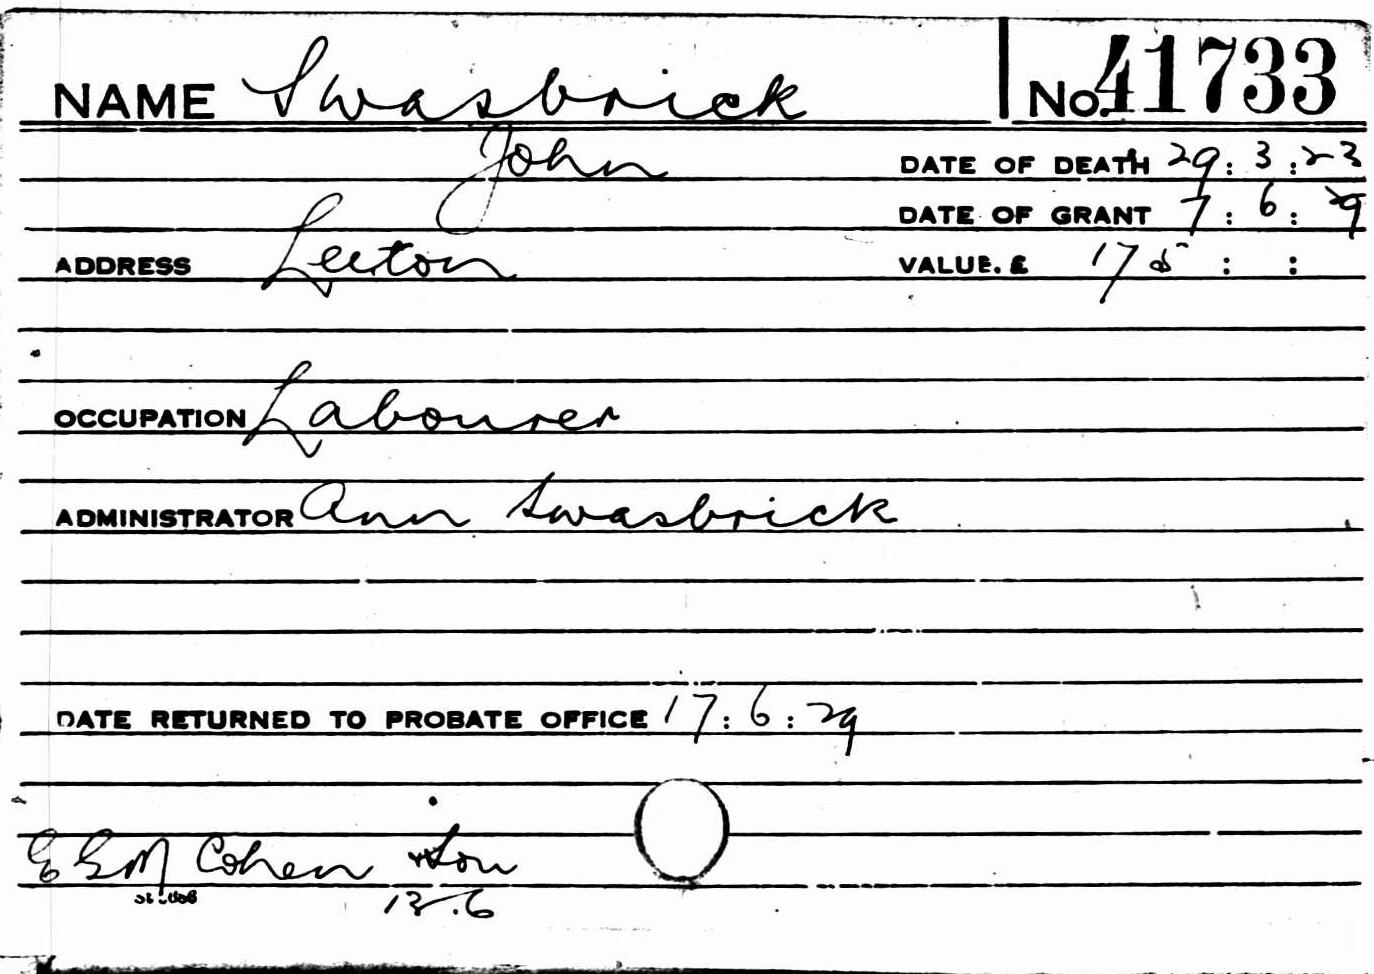 NAME Swasbrick No. 41733
John DATE OF DEATH 29 : 3 : 23
DATE OF GRANT 7 : 6 : 29
ADDRESS Leeton VALUE. £ 175 : :
OCCUPATION Labourer
ADMINISTRATOR Ann Swasbrick
DATE RETURNED TO PROBATE OFFICE 17 : 6 : 29
E E M Cohen & Son